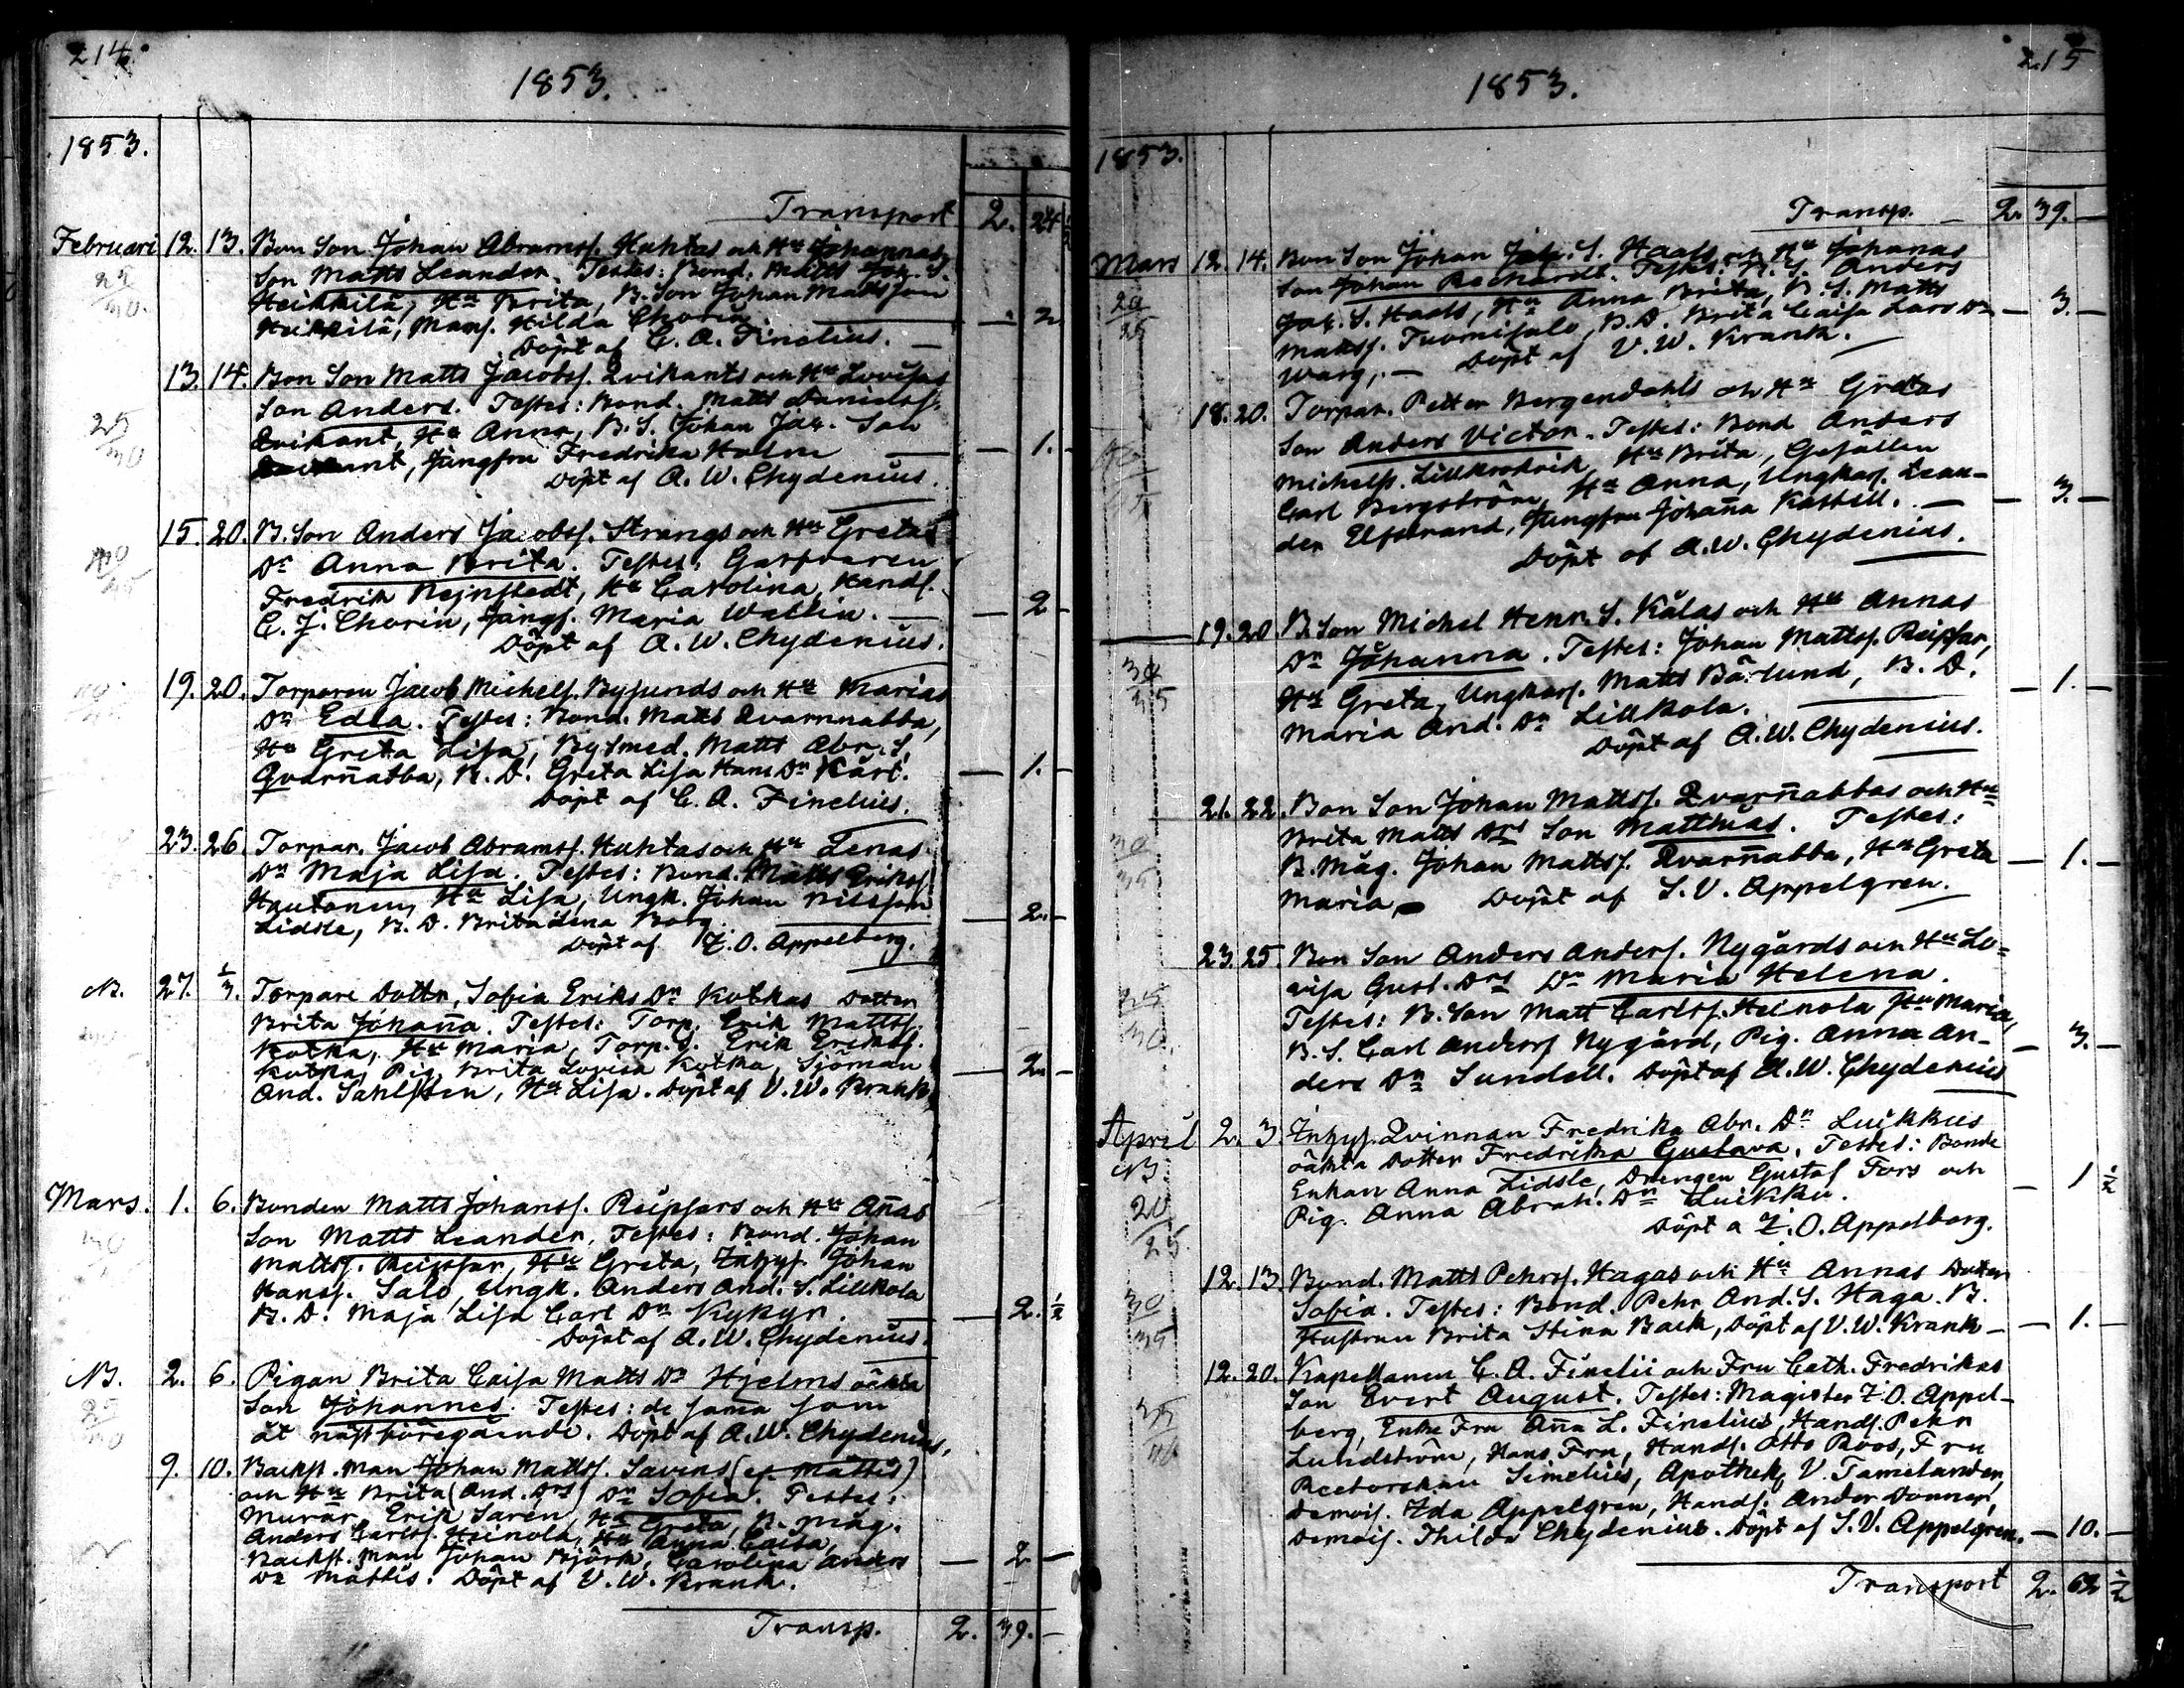 214.
1853.
1853.
Transport 2. 24 1/2
Februari 12. 13. Bon Son Johan Abramss. Huhtas och Hu Johannas
25/30. Son Matts Leander. Testes: Bond. Matts Joh. S.
Heikkilä, Hu Brita, B. Son Johan Mattsson
Heikkilä, Mams. Hilda Chorin. — 2.
Döpt af C. A. Finelius. —
13. 14. Bon Son Matts Jacobss. Qvikants och Hu Lovisas
25/30 Son Anders. Testes: Bond. Matts Danielss.
Qvikant, Hu Anna, B. S. Johan Jac. Son
Qvikant, Jungfru Fredrika Holm — 1. —
Döpt af A. W. Chydenius.
15. 20. B. Son Anders Jacobss. Strangs och Hu Gretas
Dr Anna Brita. Testes, Garfvaren
Fredrik Rejnstedt, Hu Carolina, Handl.
C. J. Chorin, Jungf. Maria Wallin. — 2 —
Döpt af A. W. Chydenius.
19. 20. Torparen Jacob Michelss. Bysunds och Hu Marias
Dr Edla. Testes: Bond. Matts Qvarnnabba,
Hu Greta Lisa, Bysmed. Matts Abr. S.
Qvarn̄abba, B. D. Greta Lisa Hans Dr Kärt. — 1. —
Döpt af C. A. Finelius.
23. 26. Torpar. Jacob Abramss. Huhtas och Hu Lenas
Dr Maja Lisa. Testes: Bond. Matts Erikss.
Hautonen, Hu Lisa, Ungk. Johan Nilsson
Lidsle, B. D. Brita Lena Borg. — 2. —
Döpt af Z. O. Appelberg.
N. 27. 1/3. Torpare Dottr, Sofia Eriks Dr Kotkas Dotter
Brita Johan̄a. Testes: Torp. Erik Mattss.
Kotka, Hu Maria, Torp. S. Erik Erikss.
Kotka, Pig. Brita Lovisa Kotka, Sjöman — 2. —
And. Sahlsten, Hu Lisa. Döpt af V. W. Krank
Mars. 1. 6. Bonden Matts Johanss. Reipsars och Hu An̄as
Son Matts Leander, Testes: Bond. Johan
Mattss. Reipsar, Hu Greta, Inhys. Johan
Hanss. Salo, Ungk. Anders And. S. Lillkola
B. D. Maja Lisa Carl Dr Kykyr. — 2. 1/2
Döpt af A. W. Chydenius.
N. 2. 6. Pigan Brita Caisa Matts Dr Hjelms oäkta
Son Johannes. Testes: de sam̄a som
åt nästföregående. Döpt af A. W. Chydenius,
9. 10. Backst. Man Johan Mattss. Savens (ej Mattis)
och Hu Brita (And. Drs) Dr Sofia. Testes:
Murar. Erik Saren, Hu Greta, B. Måg.
Anders Carlss. Heinola, Hu Anna Caisa,
Backst. Man Johan Björk, Carolina Anders — 2 —
Dr Mattis. Döpt af V. W. Krank.
Transp. 2. 39. —
215
1853.
1853.
Transp. — 2. 39. —
Mars 12. 14. Bon Son Johan Jac. S. Haals och Hu Johanas
20/25 Son Johan Richardt. Testes: B. S. Anders
Jac. S. Haals, Hu Anna Brita, B. S. Matts
Mattss. Tuomisalo, B. D. Brita Caisa Lars Dr — 3. —
Warg, — Döpt af V. W. Krank.
18. 20. Torpar. Petter Bergendahls och Hu Gretas
Son Anders Victor. Testes: Bond Anders
Michelss. Lillkrodrik, Hu Brita, Gesällen
Carl Bergström, Hu Anna, Ungkarl. Lean-
der Elfstrand, Jungfru Johan̄a Kastell. — 3. —
Döpt af A. W. Chydenius.
19. 20 B. Son Michel Henr. S. Kålas och Hu Annas
Dr Johanna. Testes: Johan Mattss. Reipsar,
Hu Greta, Ungkarl. Matts Bärlund, B. D.
Maria And. Dr Lillkola. — 1. —
Döpt af A. W. Chydenius.
21. 22. Bon Son Johan Mattss. Qvarn̄abbas och Hu
30/35 Brita Matts Drs Son Matthias. Testes:
B. Måg. Johan Mattss. Qvarn̄abba, Hu Greta — 1. —
Maria, Döpt af S. V. Appelgren.
23. 25. Bon Son Anders Anderss. Nygårds och Hu Lo=
visa Gust. Drs Dr Maria Helena.
Testes: B. Son Matt Carlss. Heinola Hu Maria,
B. S. Carl Anderss Nygård, Pig. Anna An- — 3. —
ders Dr Sundell. Döpt af A. W. Chydenius
April 2. 3 Inhys. Qvinnan Fredrika Abr. Dr Luikkus
N. oäkta Dotter Fredrika Gustava. Testes: Bonde
Enkan Anna Lidsle, Drengen Gustaf Fors och — 1 1/2
20/25. Pig. Anna Abrah. Dr Luikku.
Döpt a Z. O. Appelberg.
12. 13. Bond. Matts Pehrss. Hagas och Hu Annas Dotter
30/35 Sofia. Testes: Bond. Pehr And. S. Haga. B.
Hustrun Brita Stina Back, Döpt af V. W. Krank — 1. —
12. 20. Kapellanen C. A. Finelii och Fru Cath. Fredrikas
Son Evert August. Testes: Magister Z. O. Appel-
berg, Enke Fru An̄a L. Finelius, Handl. Pehr
Lundström, Hans Fru, Handl. Otto Roos, Fru
Rectorskan Simelius, Apothek. V. Tamelander,
Demois. Ida Appelgren, Handl. Ander Donner,
Demois. Thilda Chydenius. Döpt af S. V. Appelgren. — 10. —
Transport 2. 62 1/2